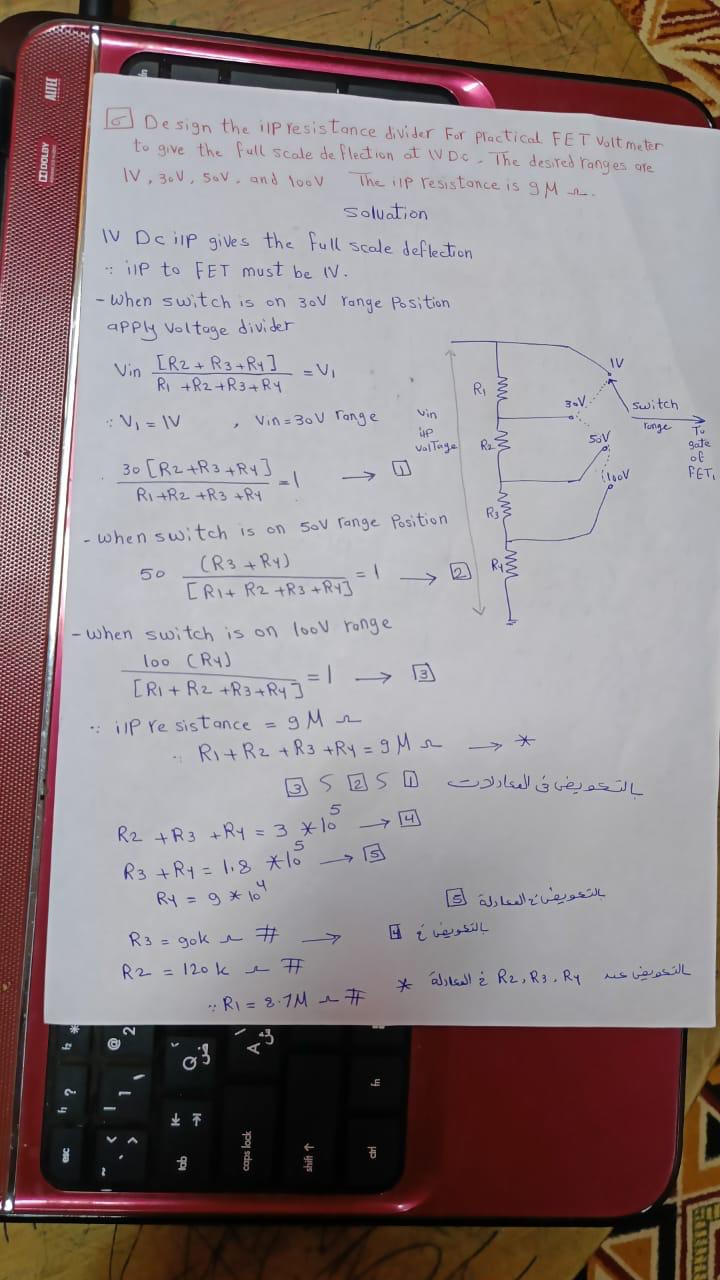 6 Design the i/P resistance divider For Practical FET Voltmeter
to give the full scale deflection at 1V DC. The desired ranges are
1V, 30V, 50V, and 100V The i/P resistance is 9M Ω.
Soluation
1V Dc i/P gives the full scale deflection
∵ i/P to FET must be 1V.
- When switch is on 30V range Position
apply Voltage divider
Vin [R2 + R3 + R4] / R1 + R2 + R3 + R4 = V1
∵ V1 = 1V , Vin = 30V range
30 [R2 + R3 + R4] / R1 + R2 + R3 + R4 = 1 → 1
- when switch is on 50V range Position
50 (R3 + R4) / [R1 + R2 + R3 + R4] = 1 → 2
- when switch is on 100V range
100 (R4) / [R1 + R2 + R3 + R4] = 1 → 3
∵ i/P resistance = 9M Ω
∴ R1 + R2 + R3 + R4 = 9M Ω → *
بالتعويض فى المعادلات 1 و 2 و 3
R2 + R3 + R4 = 3 * 10^5 → 4
R3 + R4 = 1.8 * 10^5 → 5
R4 = 9 * 10^4
بالتعويض فى المعادلة 5
R3 = 90k Ω # → بالتعويض فى 4
R2 = 120k Ω #
التعويض عن R2, R3, R4 فى المعادلة *
∴ R1 = 8.7M Ω #
Vin
i/P
Voltage
R1
R2
R3
R4
1V
30V
50V
100V
switch
range
To
gate
of
FET1
DOLBY
esc
tab
caps lock
shift ↑
ctrl
fn
Q
ض
A
ش
@ 2
! 1
~